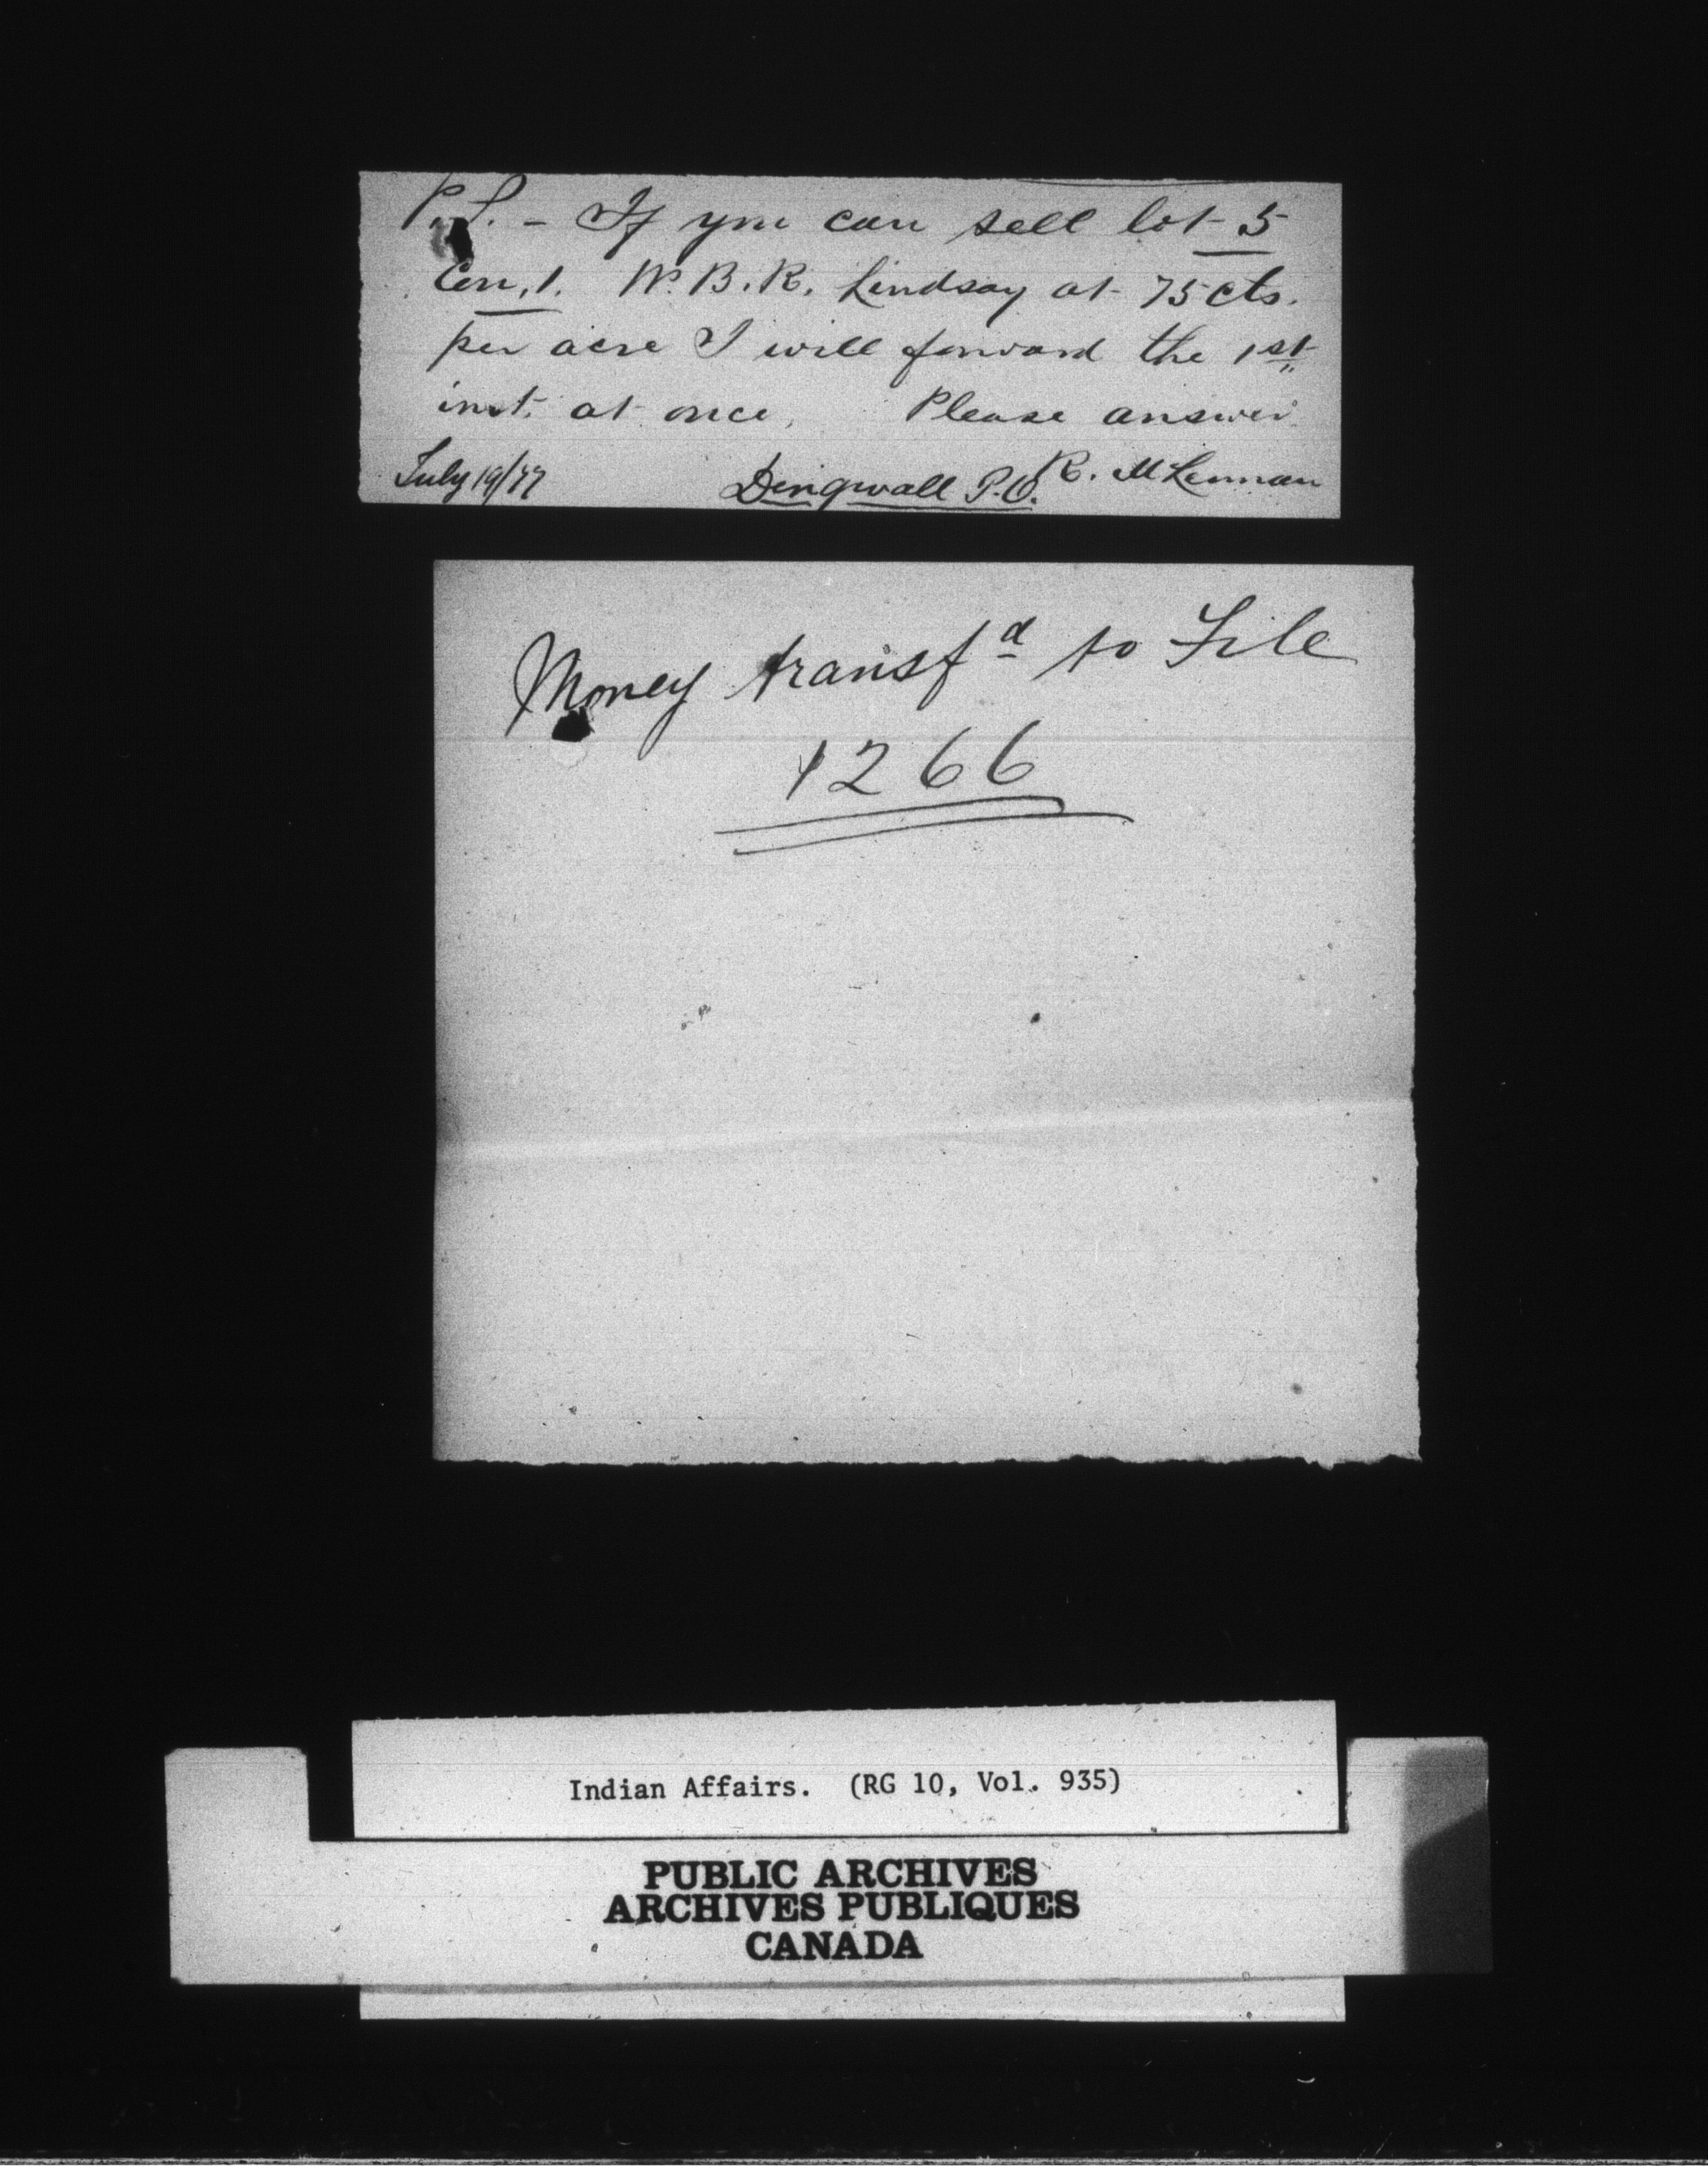 P.S. - If you can sell lot 5
Con. 1. W. B. R. Lindsay at 75 cts.
per acre I will forward the 1st
inst. at once. Please answer
July 19/77 Dingwall P.O. R. McLennan
Money transfd to File
1266
Indian Affairs. (RG 10, Vol. 935)
PUBLIC ARCHIVES
ARCHIVES PUBLIQUES
CANADA